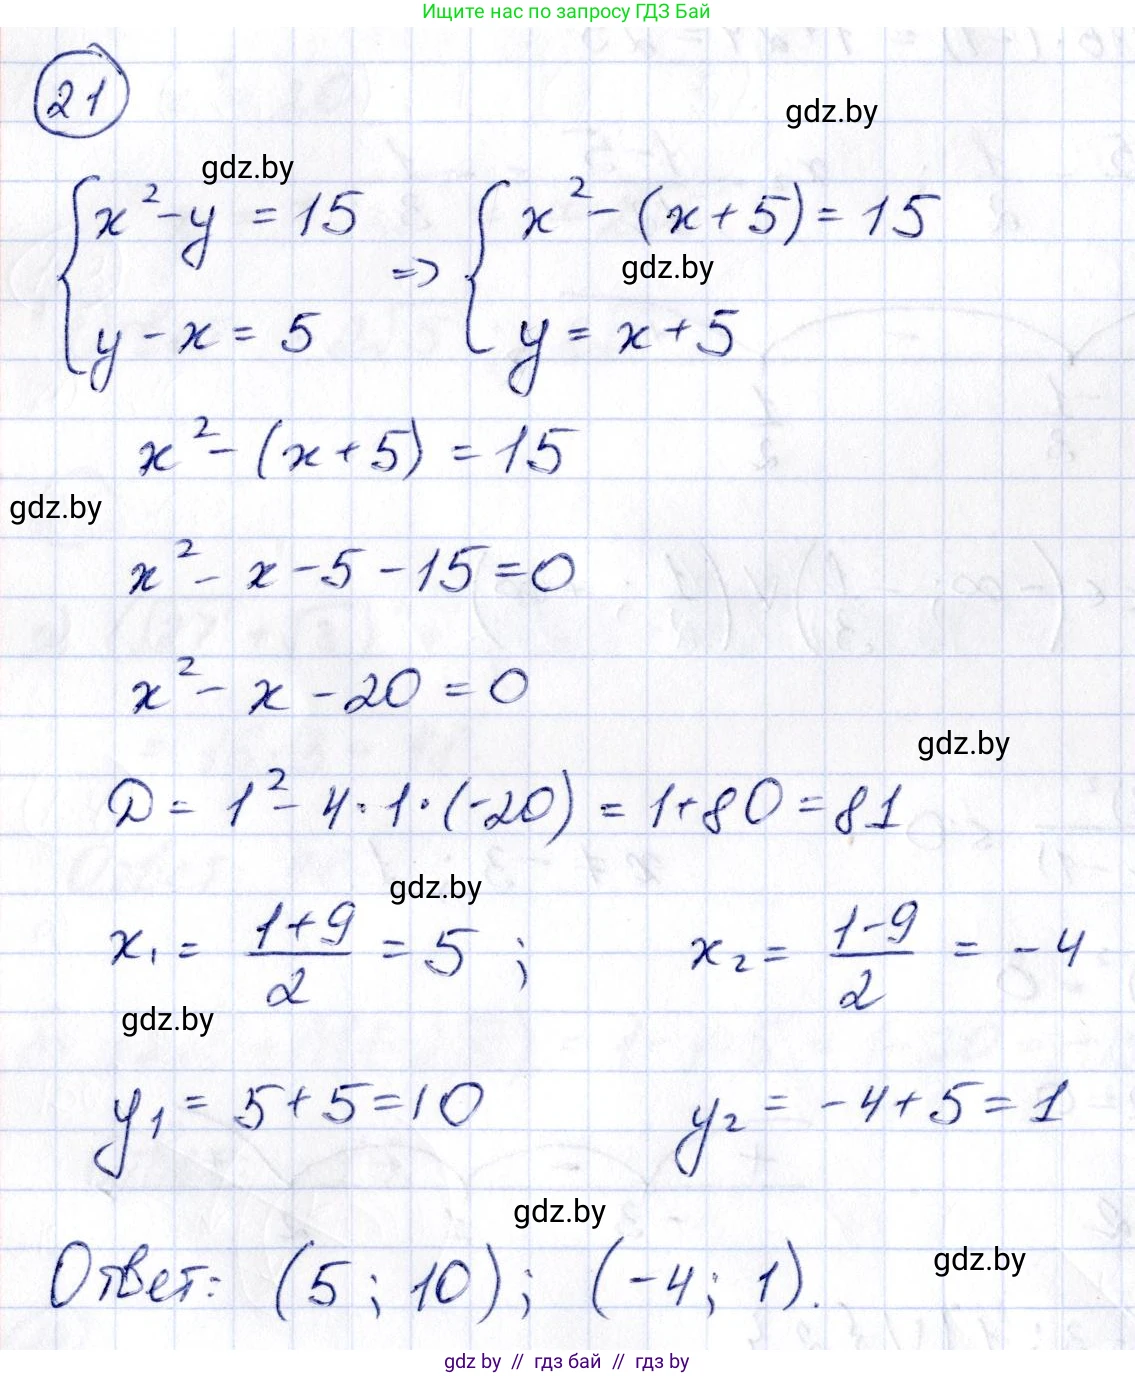 Ищите нас по запросу ГДЗ Бай
21
gdz.by
gdz.by
{ x² - y = 15 => { x² - (x + 5) = 15
gdz.by
y - x = 5 y = x + 5
x² - (x + 5) = 15
gdz.by
x² - x - 5 - 15 = 0
x² - x - 20 = 0
gdz.by
D = 1² - 4 · 1 · (-20) = 1 + 80 = 81
gdz.by
x₁ = (1+9)/2 = 5 ; x₂ = (1-9)/2 = -4
gdz.by
y₁ = 5 + 5 = 10 y₂ = -4 + 5 = 1
gdz.by
Ответ: (5 ; 10) ; (-4 ; 1).
gdz.by
gdz by // гдз бай // гдз by